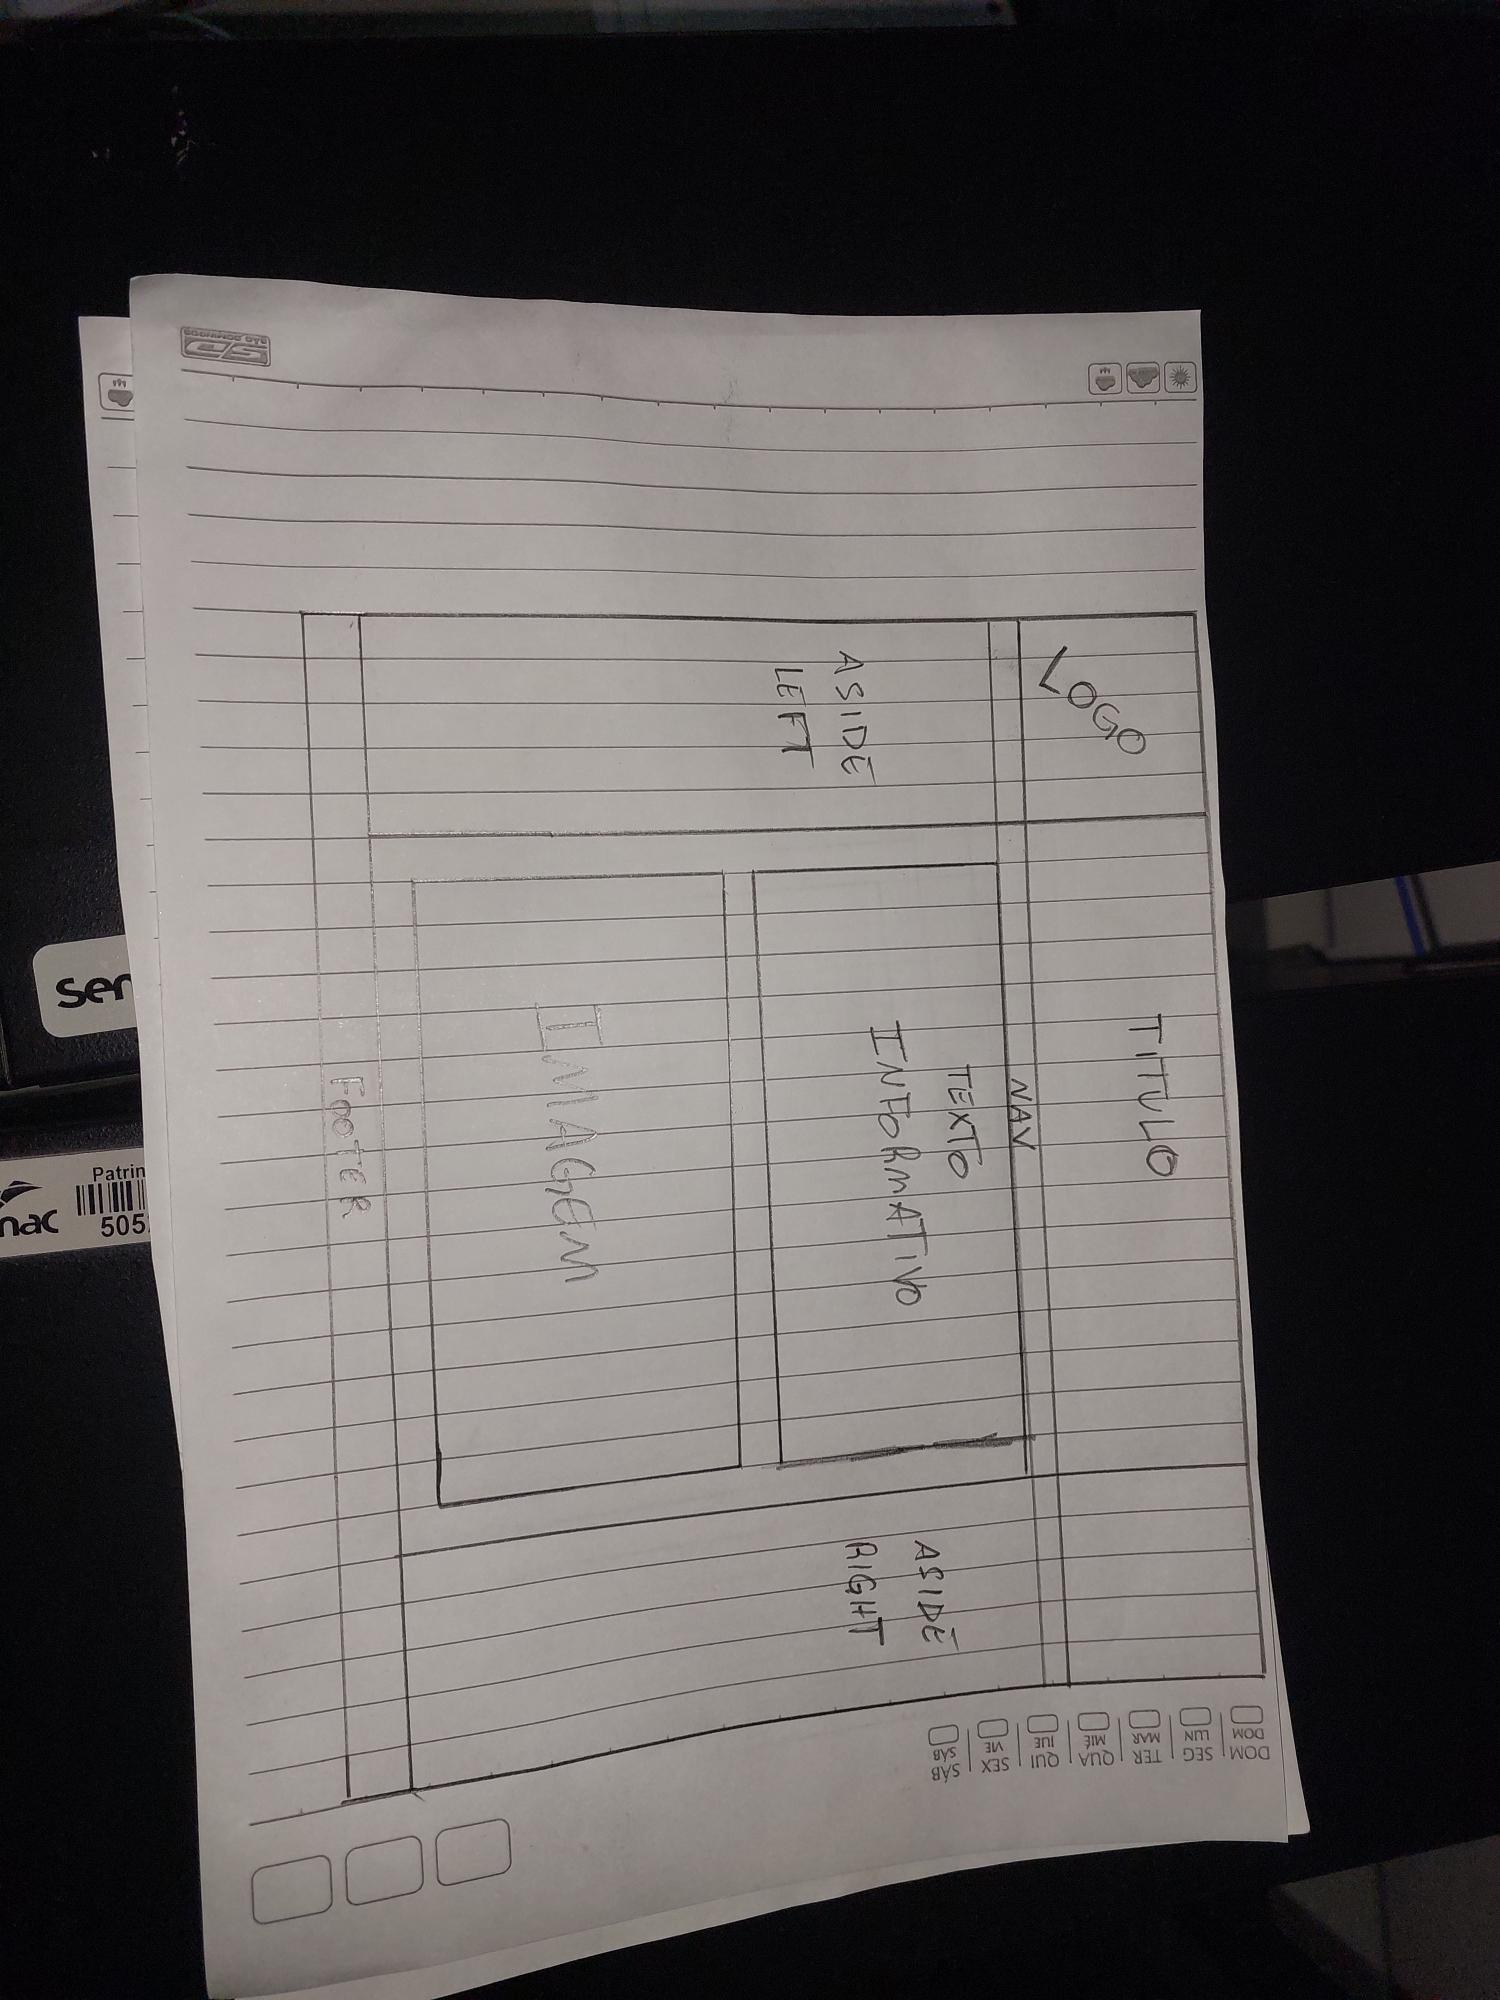 LOGO
TITULO
NAV
ASIDE
LEFT
TEXTO
INFORMATIVO
IMAGEM
ASIDE
RIGHT
FOOTER
DOM
DOM
SEG
LUN
TER
MAR
QUA
MIÉ
QUI
JUE
SEX
VIE
SÁB
SÁB
sen
Patrim
nac
505